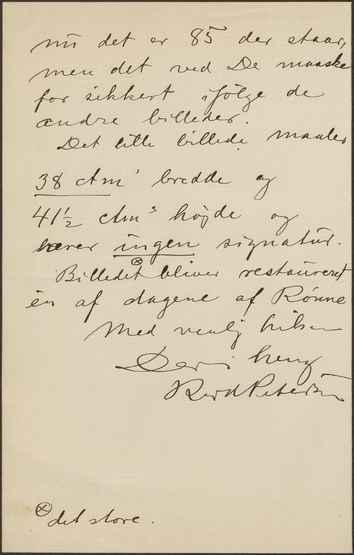 nu det er 85 der staar,
men det ved De maaske
for sikkert ifølge de
andre billeder.
Det lille billede maaler
38 Ctm' bredde og
41½ Ctm's højde og
bærer ingen signatur.
⊗
Billedet bliver restaureret
én af dagene af Rønne
Med venlig hilsen
Deres heng
Petersen
⊗ det store.